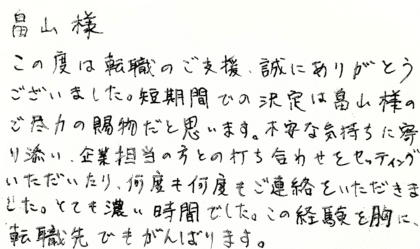 畠山様
この度は転職のご支援、誠にありがとう
ございました。短期間での決定は畠山様の
ご尽力の賜物だと思います。不安な気持ちに寄
り添い、企業担当の方との打ち合わせをセッティング
いただいたり、何度も何度もご連絡をいただきま
した。とても濃い時間でした。この経験を胸に、
転職先でもがんばります。